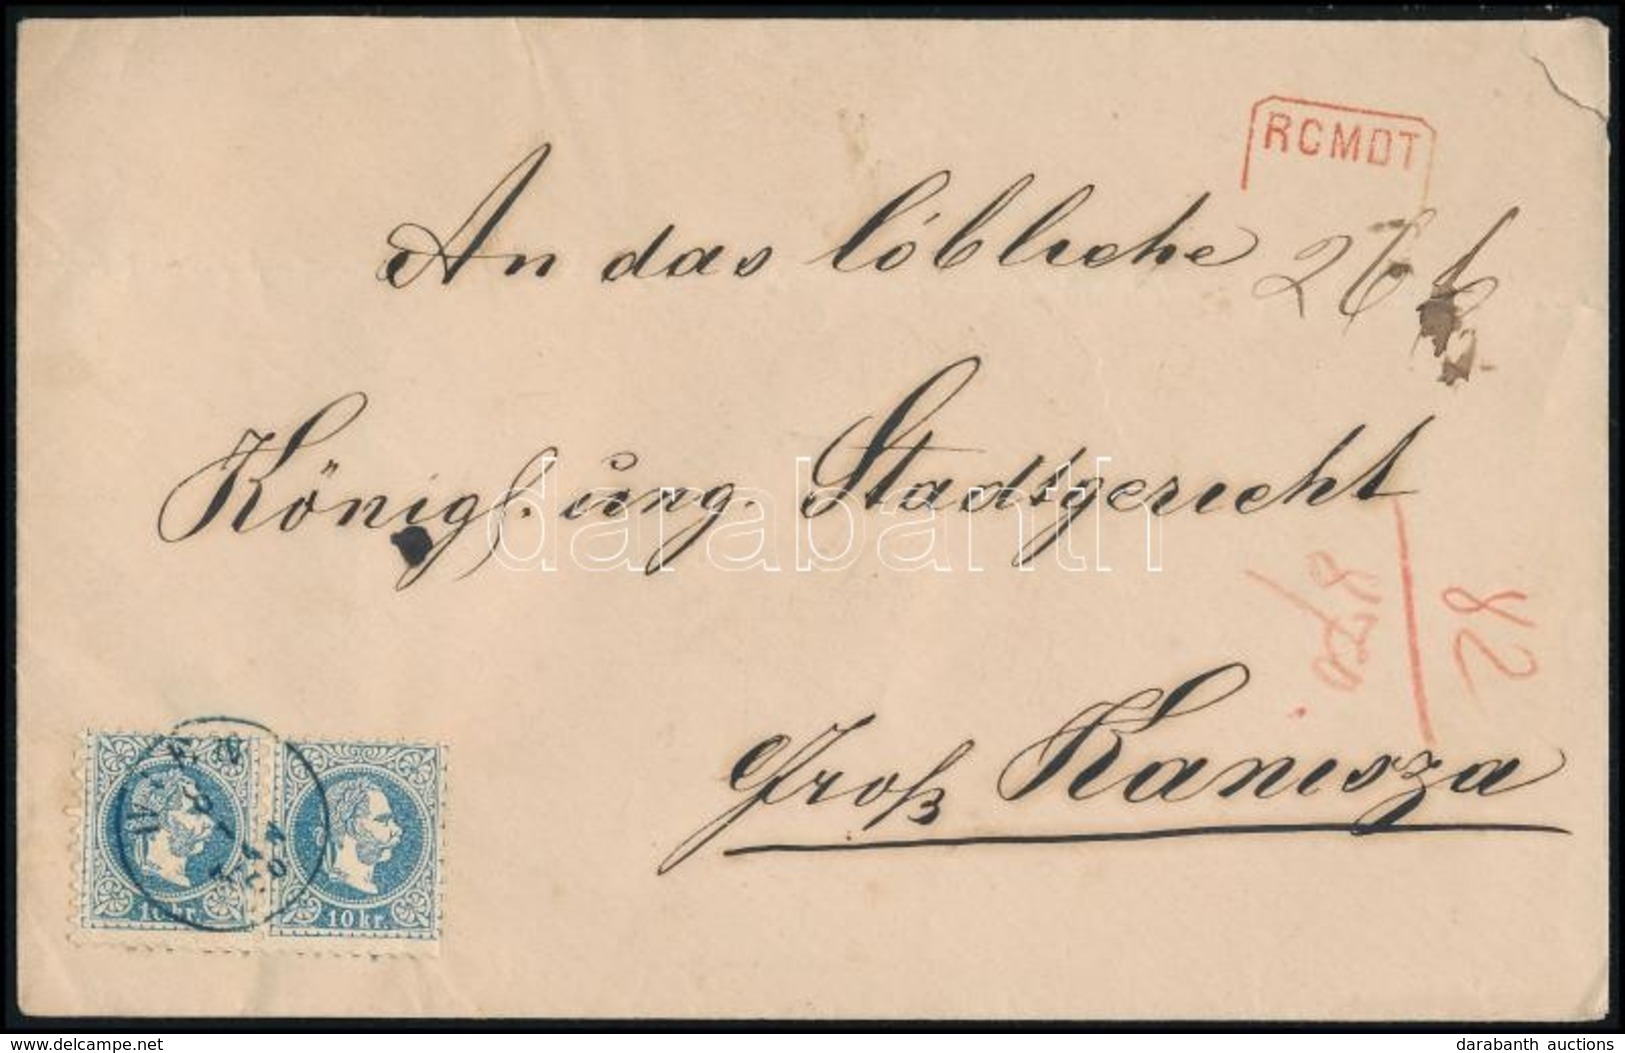 RCMDT
An das löbliche
Königl. ung. Stadtgericht
82
Groß Kanisza
WIEN
10 kr. 10 kr.
darabanth
darabanth auctions
www.delcampe.net